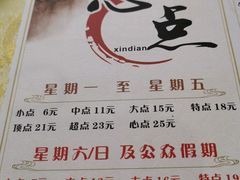 心点
xindian
星期一 至 星期五
小点 6元 中点 11元 大点 15元 特点 18元
顶点 21元 超点 23元 心点 25元
星期六/日 及公众假期